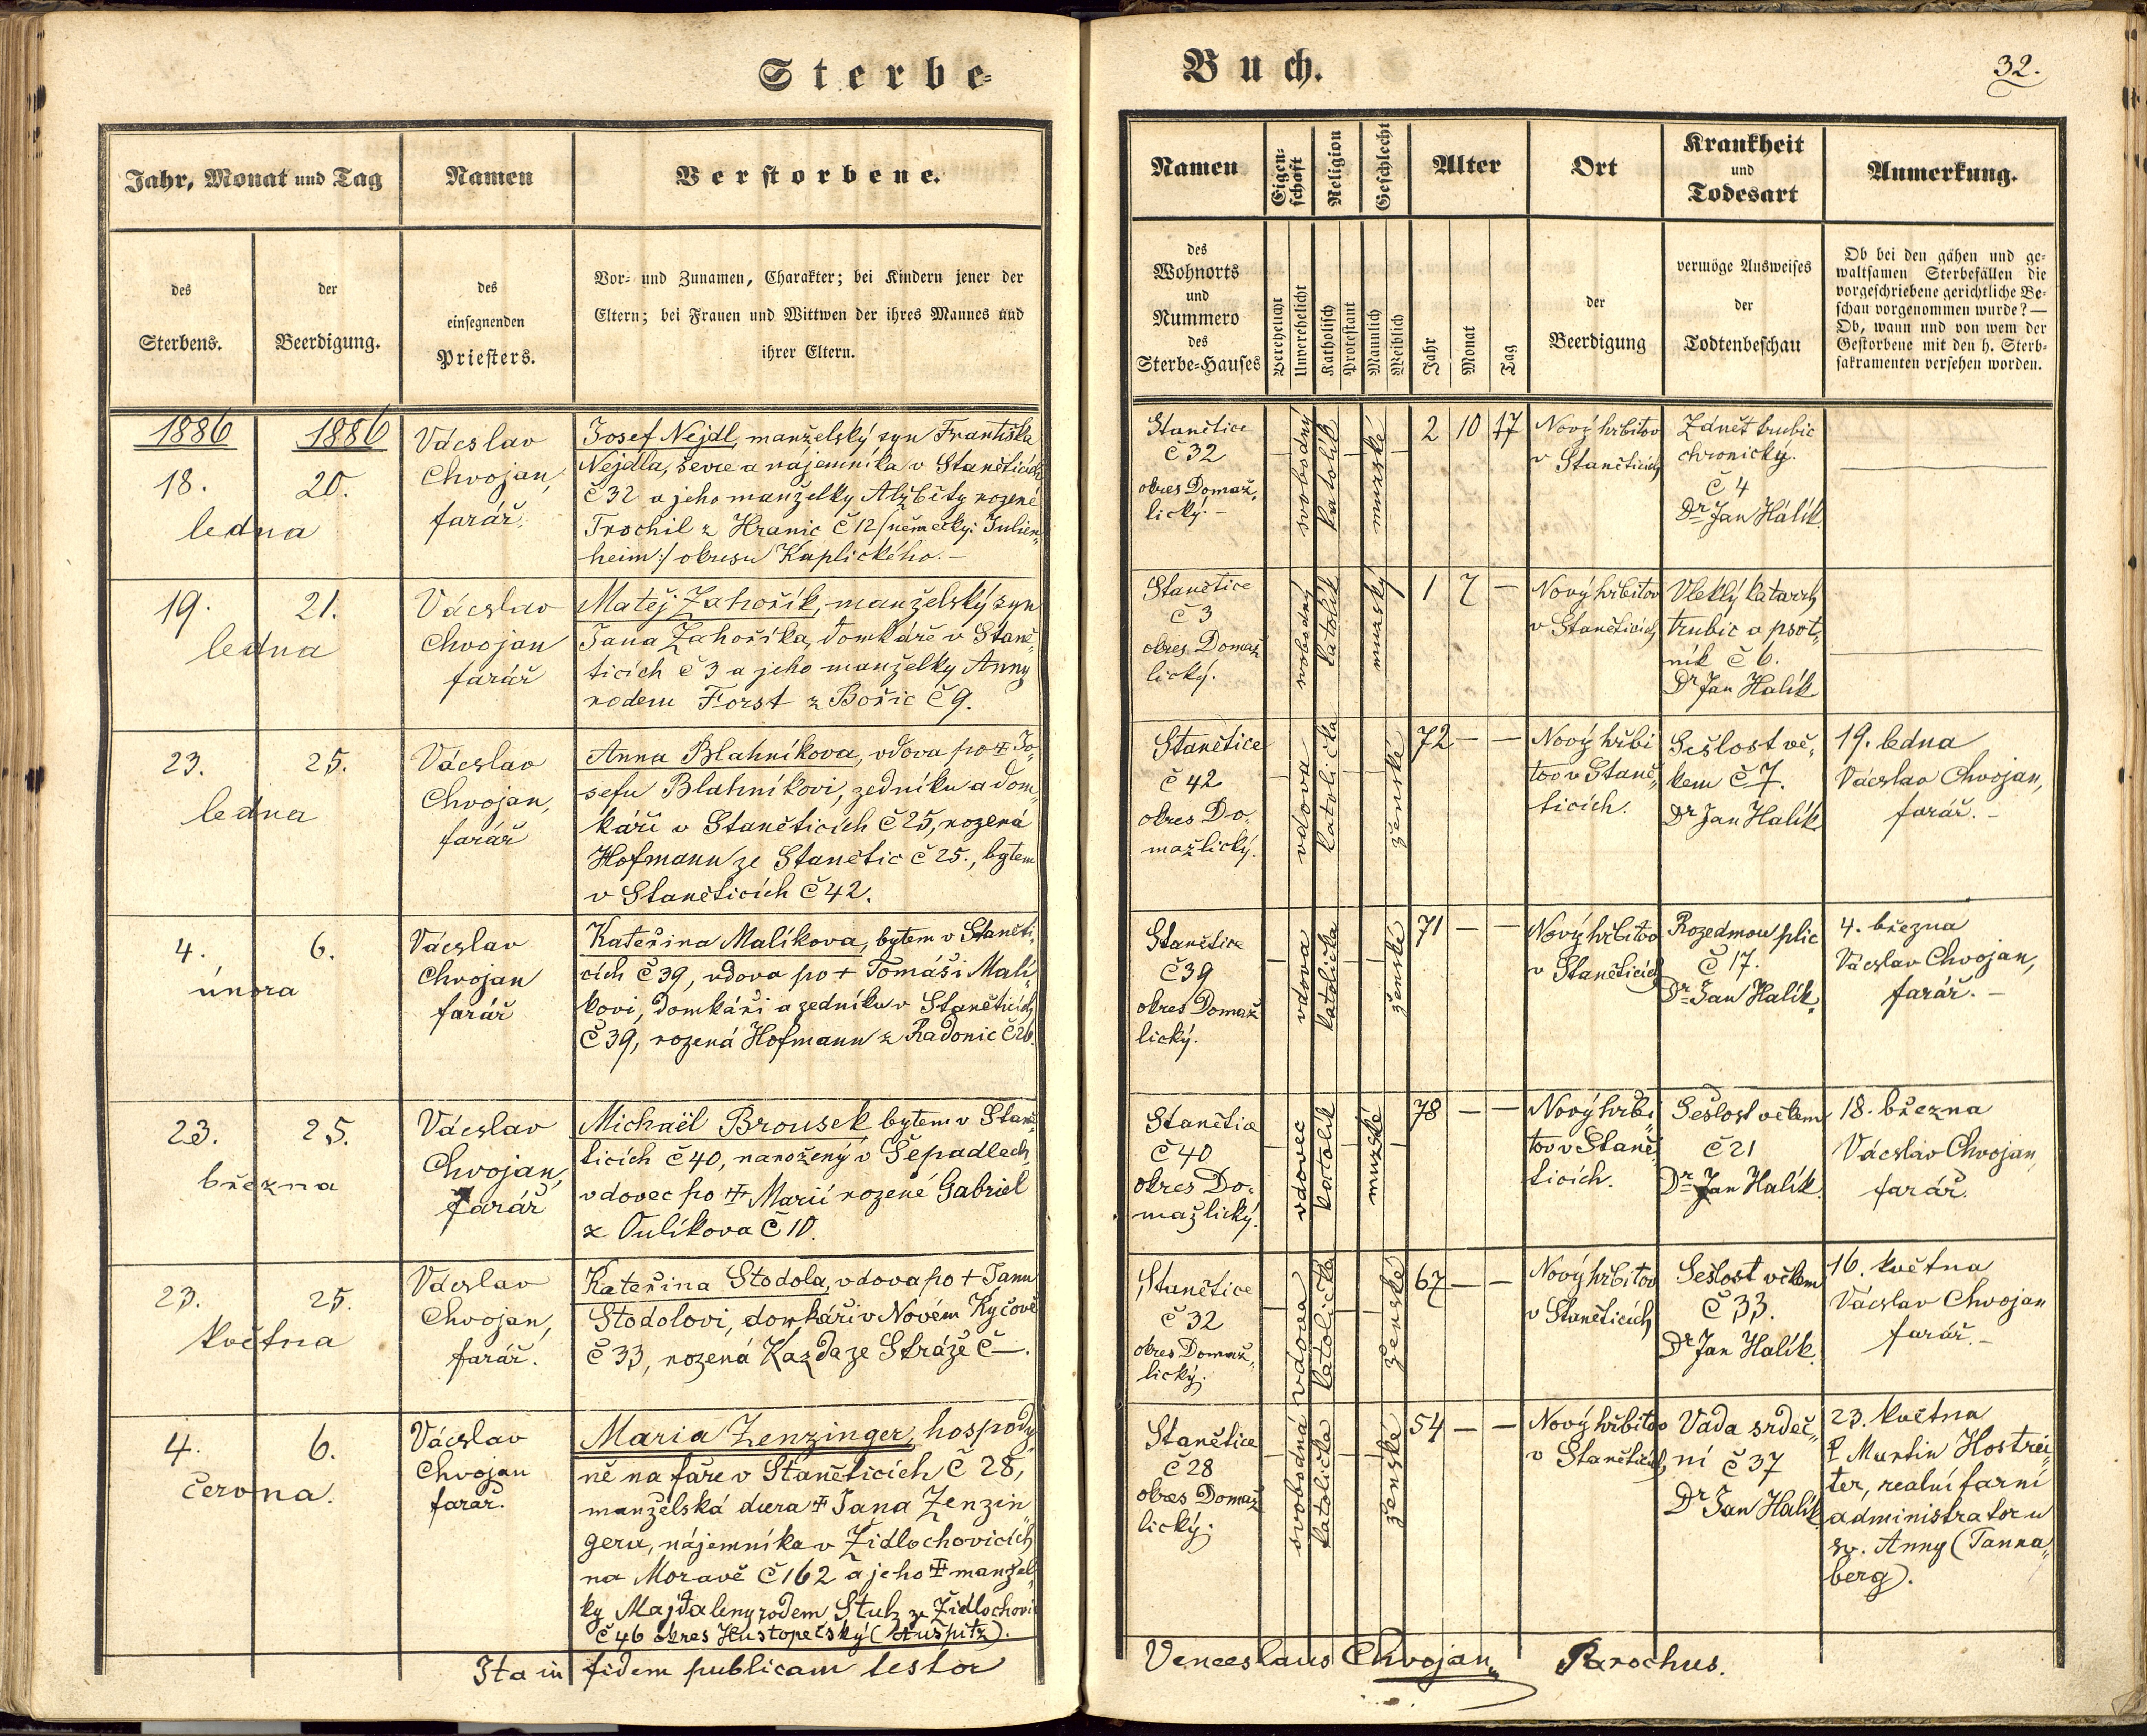 Sterbe-
Jahr, Monat und Tag
Namen
Verstorbene.
des
Sterbens.
der
Beerdigung.
des
einsegnenden
Priesters.
Vor- und Zunamen, Charakter; bei Kindern jener der
Eltern; bei Frauen und Wittwen der ihres Mannes und
ihrer Eltern.
1886 1886
18. 20.
ledna
Václav
Chvojan,
farář.
Josef Nejdl, manželský syn Františka
Nejdla, ševce a nájemníka v Staněticích
č 32 a jeho manželky Alžběty rozené
Trochil z Hranic č 12 /:německy: Julien„
heim:/ okresu Kaplického.–
19. 21.
ledna
Václav
Chvojan
farář
Matěj Zahořík, manželský syn
Jana Zahoříka, domkáře v Staně„
ticích č 3 a jeho manželky Anny
rodem Forst z Bořic č 9.
23. 25.
ledna
Václav
Chvojan,
farář
Anna Blahníkova, vdova po ‡ Jo„
sefu Blahníkovi, zedníku a dom„
káři v Staněticích č 25, rozená
Hofmann ze Stanětic č 25., bytem
v Staněticích č 42.
4. 6.
února
Václav
Chvojan
farář
Kateřina Malíkova, bytem v Staněti„
cích č 39, vdova po + Tomáši Malí„
kovi, domkáři a zedníku v Staněticích
č 39, rozená Hofmann z Radonic č 26.
23. 25.
března
Václav
Chvojan,
farář
Michaël Brousek, bytem v Staně„
ticích č 40, narožený v Šepadlech
vdovec po ‡ Marii rozené Gabriel
z Oulíkova č 10.
23. 25.
května
Václav
Chvojan,
farář.
Kateřina Stodola, vdova po + Janu
Stodolovi, domkáři v Novém Kyčově
č 33, rozená Kazda ze Stráže č –.
4. 6.
června.
Václav
Chvojan
farář.
Maria Zenzinger, hospody„
ně na faře v Staněticích č 28,
manželská dcera ‡ Jana Zenzin„
gera, nájemníka v Židlochovicích
na Moravě č 162 a jeho ‡ manžel„
ky Majdaleny rodem Stuh ze Židlochovic
č 46 okres Hustopečský (Auspitz).
Ita in fidem publicam testor
Buch.
32.
Namen
Eigen-
schaft
Religion
Geschlecht
Alter
Ort
Krankheit
und
Todesart
Anmerkung.
des
Wohnorts
und
Nummero
des
Sterbe-Hauses
Verehelicht
Unverehelicht
Katholisch
Protestant
Männlich
Weiblich
Jahr
Monat
Tag
der
Beerdigung
vermöge Ausweises
der
Todtenbeschau
Ob bei den gähen und ge-
waltsamen Sterbefällen die
vorgeschriebene gerichtliche Be-
schau vorgenommen wurde? —
Ob, wann und von wem der
Gestorbene mit den h. Sterb-
sakramenten versehen worden.
Stanětice
č 32
okres Domaž„
lický.–
svobodný
katolík
mužské
2 10 17
Nový hřbitov
v Staněticích
Zánět trubic
chronický.
č 4
Dr Jan Halík.
Stanětice
č 3
okres Domaž
lický.
svobodný
katolík
mužský
1 7 –
Nový hřbitov
v Staněticích
Vleklý katarrh
trubic a psot„
ník č 6.
Dr Jan Halík
Stanětice
č 42
okres Do„
mažlický.
vdova
katolička
ženské
72 – –
Nový hřbi
tov v Staně„
ticích.
Sešlost vě„
kem č 7.
Dr Jan Halík
19. ledna
Václav Chvojan,
farář.–
Stanětice
č 39
okres Domaž
lický.
vdova
katolička
ženské
71 – –
Nový hřbitov
v Staněticích
Rozedmou plic
č 17.
Dr Jan Halík.
4. března
Václav Chvojan,
farář.–
Stanětice
č 40
okres Do„
mažlický.
vdovec
katolík
mužské
78 – –
Nový hřbi„
tov v Staně
ticích.
Sešlost věkem
č 21
Dr Jan Halík.
18. března
Václav Chvojan
farář.
Stanětice
č 32
okres Domaž„
lický.
vdova
katolička
ženské
67 – –
Nový hřbitov
v Staněticích
Sešlost věkem
č 33.
Dr Jan Halík.
16. května
Václav Chvojan
farář.–
Stanětice
č 28
okres Domaž
lický.
svobodná
katolička
ženské
54 – –
Nový hřbitov
v Staněticích
Vada srdeč„
ní č 37
Dr Jan Halík
23. května
P Martin Hostrei„
ter, realní farní
administrator u
sv. Anny (Tanna„
berg).
Venceslaus Chvojan„ Parochus.